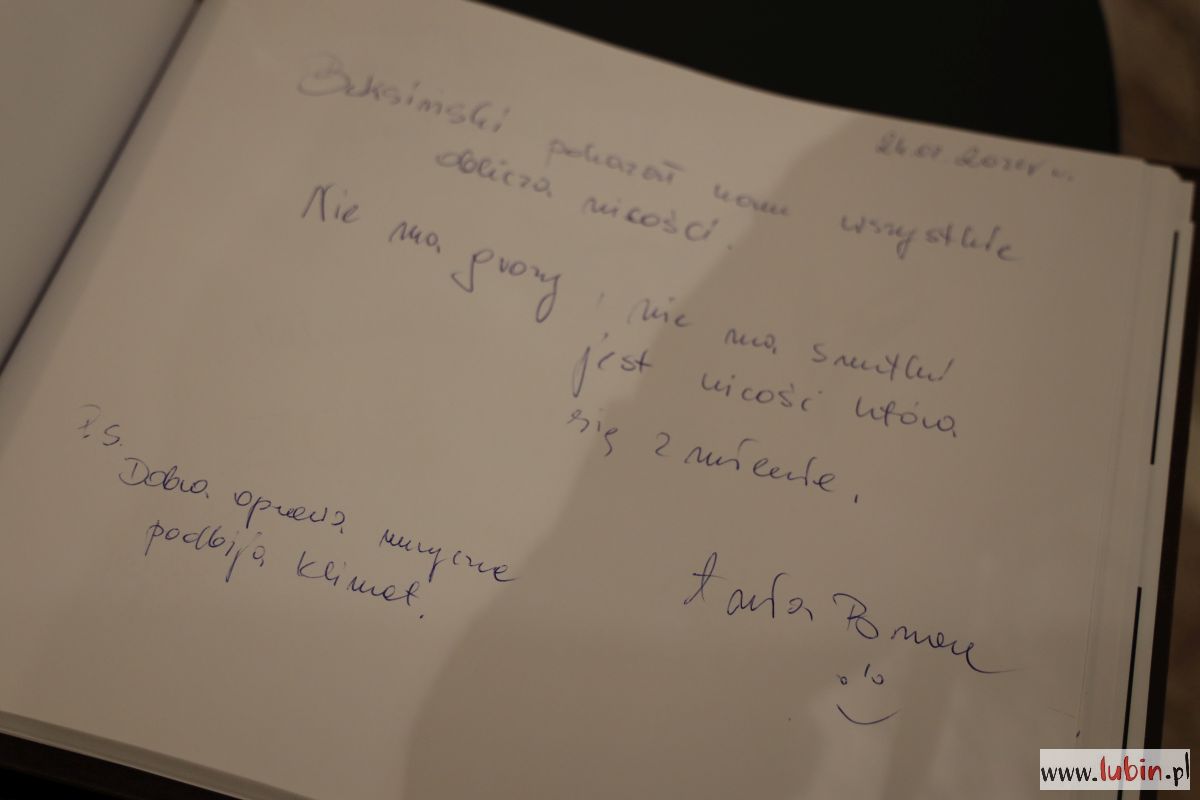 Beksiński pokazał nam wszystkie
oblicza nicości.
Nie ma grozy, nie ma smutku
jest nicość która
się z nie
P.S.
Dobra oprawa muzyczna
podbija klimat.
Ania
www.lubin.pl